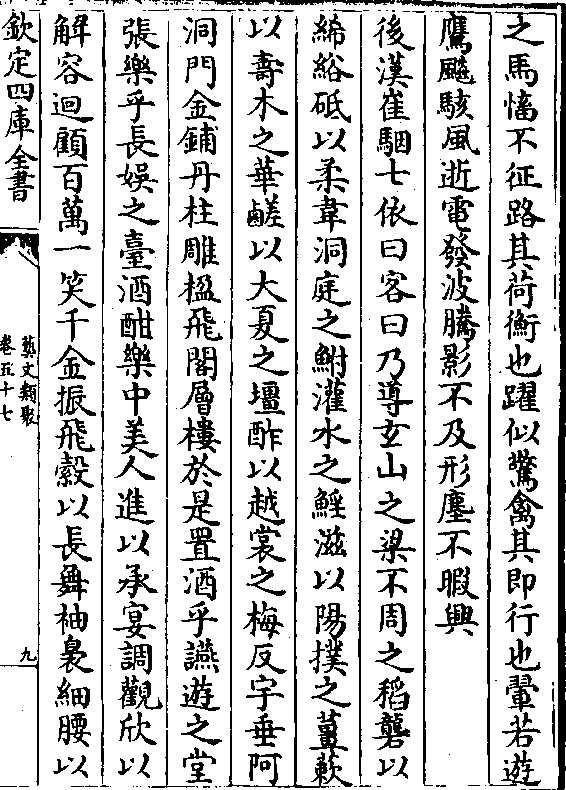 之馬慉不征路其荷衡也躍似驚禽其即行也翬若遊
鷹飈駭風逝電發波騰影不及形塵不暇興
後漢崔駰七依曰客曰乃導玄山之梁不周之稻礱以
絺綌砥以柔韋洞庭之鮒灌水之鰩滋以陽撲之薑蔌
以壽木之華鹺以大夏之壃酢以越裳之梅反宇垂阿
洞門金鋪丹柱雕楹飛閣層樓於是置酒乎讌遊之堂
張樂乎長娯之臺酒酣樂中美人進以承宴調觀欣以
解容迴顧百萬一笑千金振飛縠以長舞袖裊細腰以
欽定四庫全書
藝文類聚
卷五十七
九